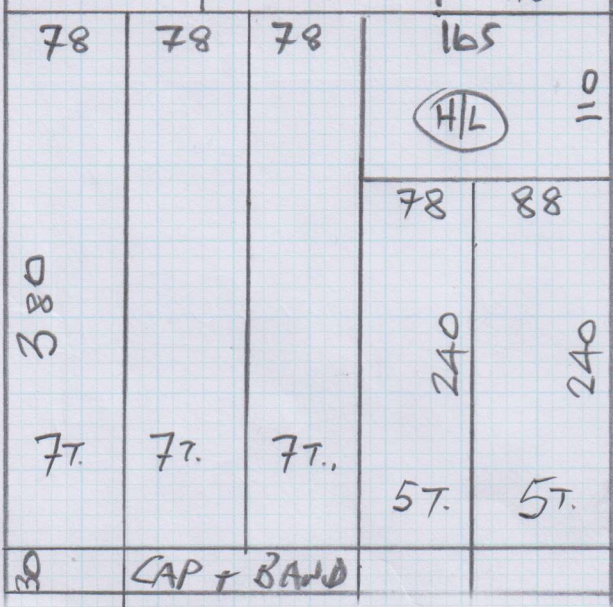 78 78 78 165
H/L 110
78 88
380 240 240
7T. 7T. 7T.
5T. 5T.
30 CAP + BAND